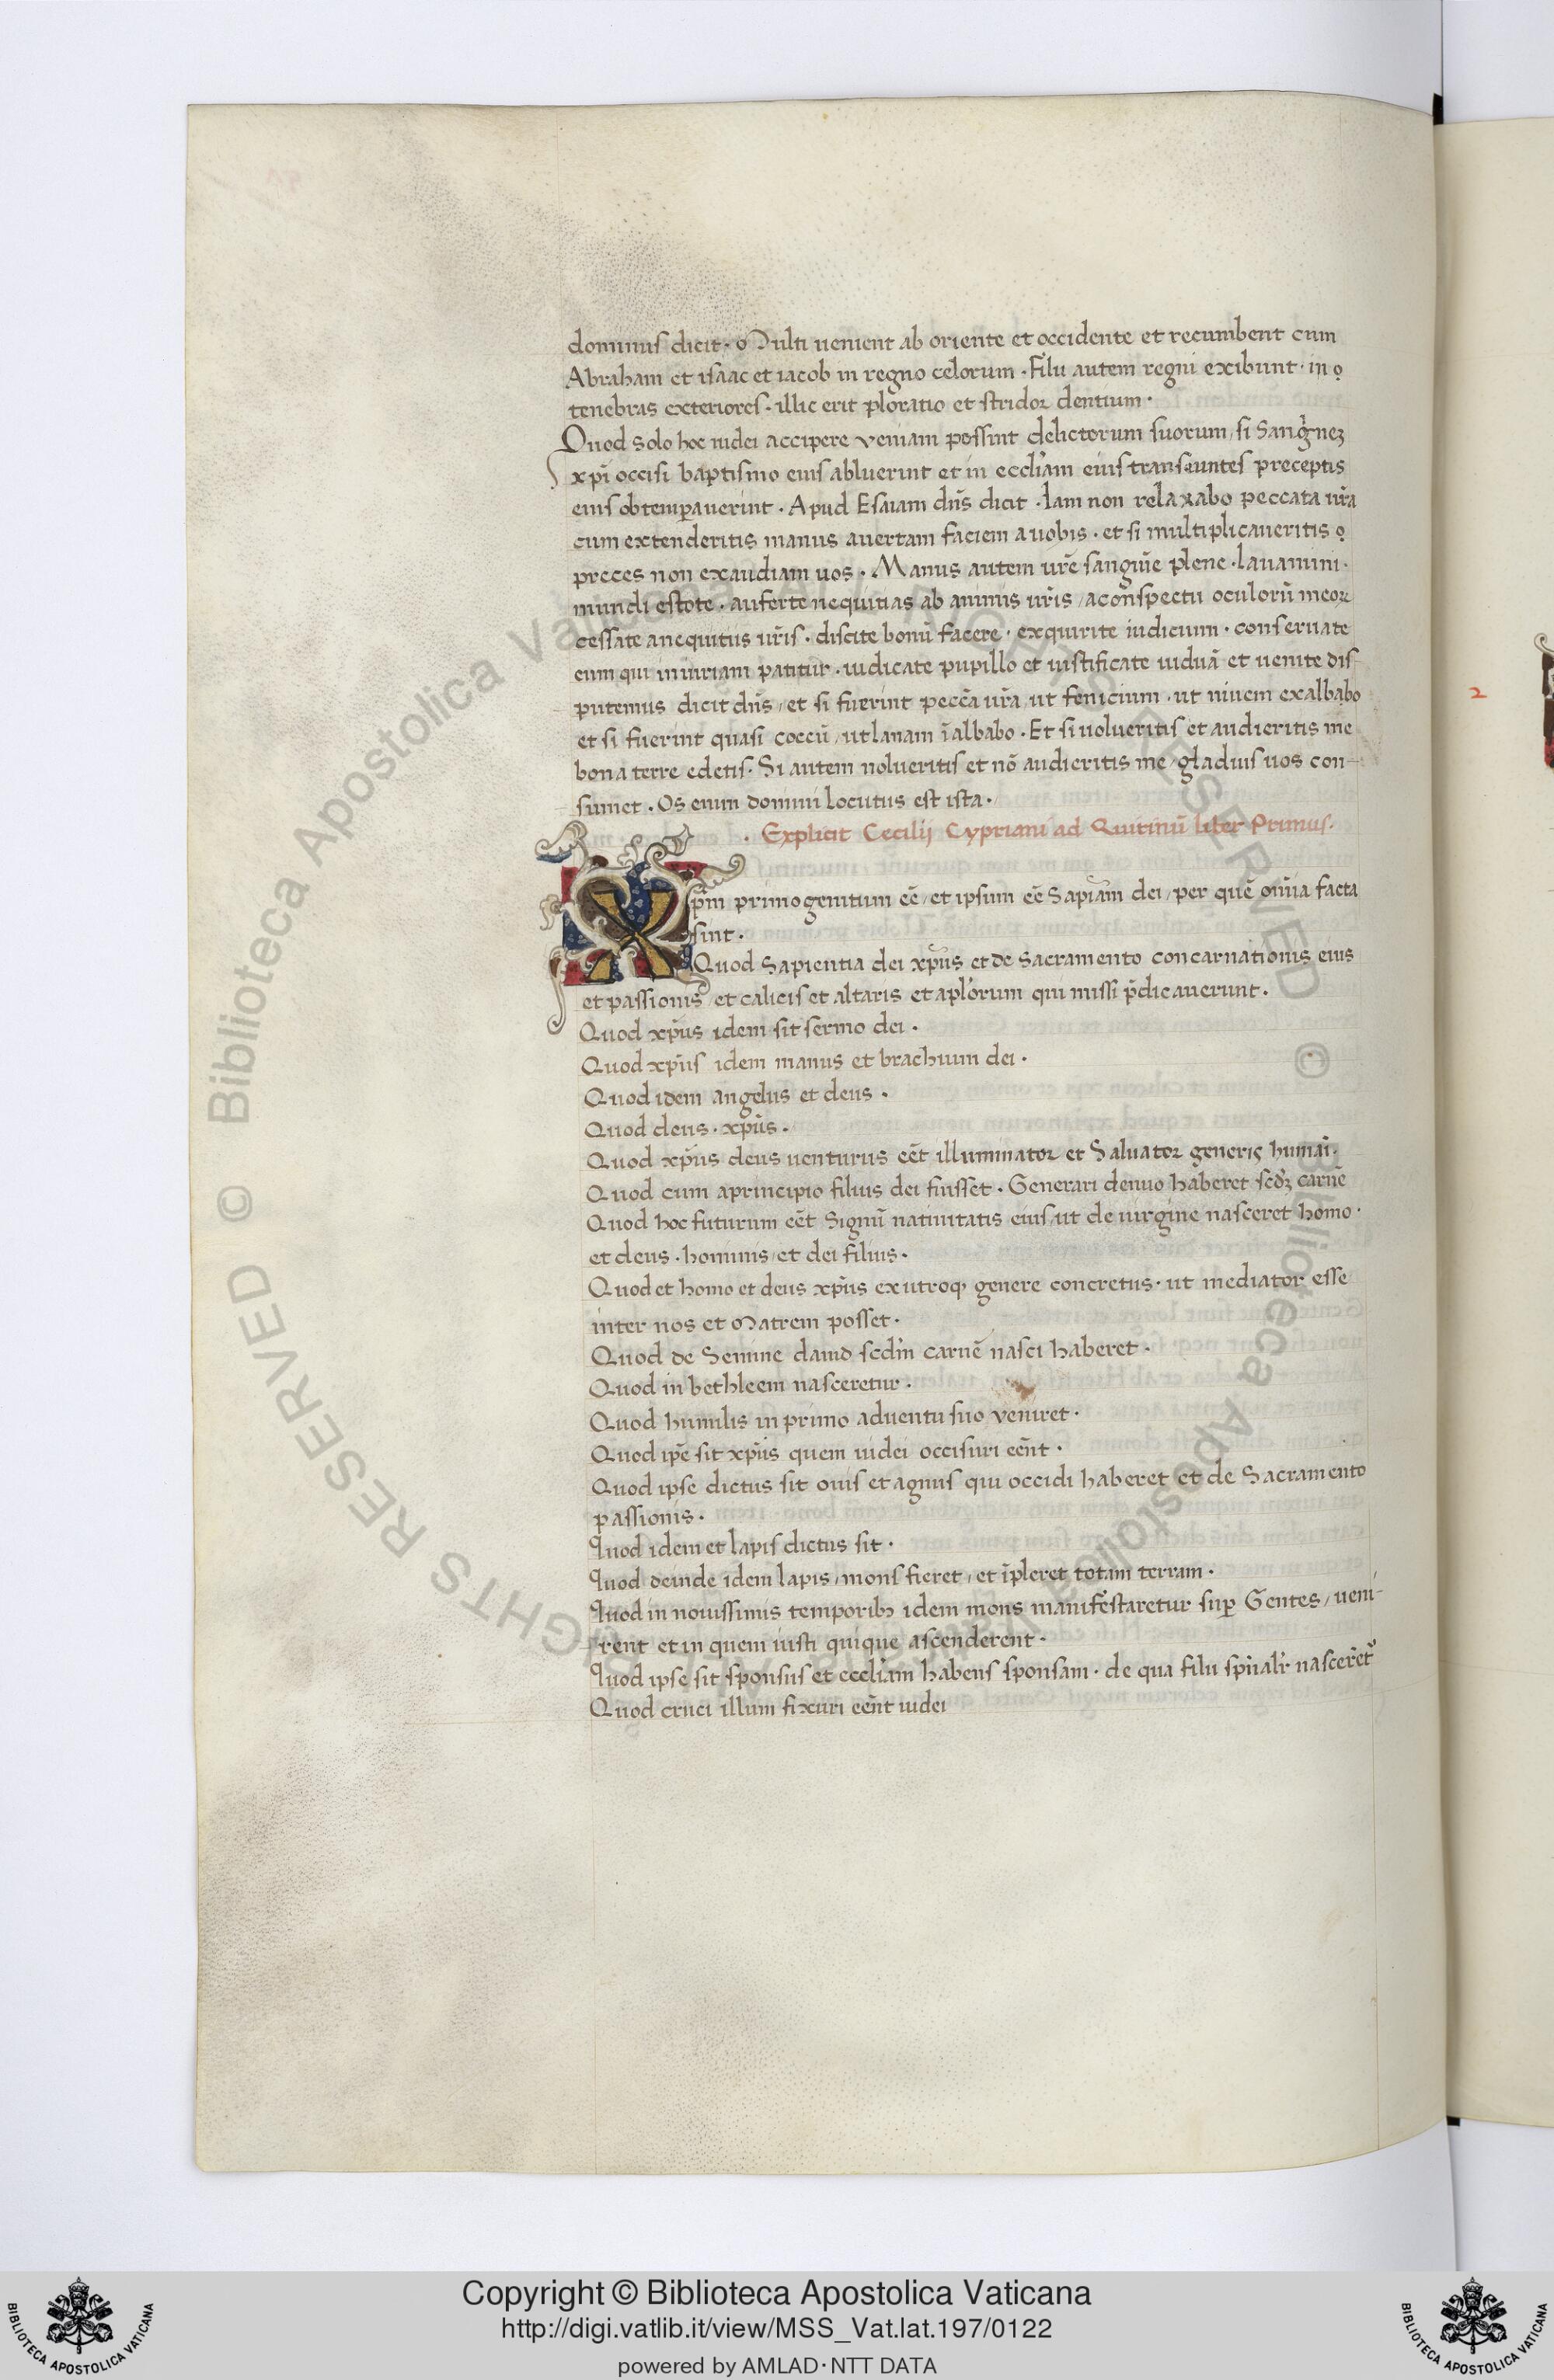 dominus dicit · Multi uenient ab oriente et occidente et recumbent cum
Abraham et isaac et iacob in regno celorum · Filii autem regni exibunt · in
tenebras exteriores · illic erit ploratio et stridor dentium ·
Quod solo hoc iudei accipere veniam possint delictorum suorum / si Sang̃nez
xp̃i occisi baptismo eius abluerint et in eccl̃iam eius transeuntes preceptis
eius obtemꝑauerint · Apud Esaiam dñs dicit · Iam non relaxabo peccata ur̃a
cum extenderitis manus auertam faciem a uobis · et si multiplicaueritis
preces non exaudiam uos · Manus autem ur̃e sangũie plene · lauamini ·
mundi estote · auferte nequitias ab animis ur̃is / aconspectu oculorũ meoꝝ
cessate anequitiis ur̃is · discite bonũ facere · exquirite iudicium · conseruate
eum qui iniuriam patitur · iudicate pupillo et iustificate uiduã et uenite dis-
putemus dicit dñs / et si fuerint pecc̃a ur̃a / ut fenicium · ut niuem exalbabo
et si fuerint quasi coccũ / ut lanam ĩalbabo · Et si uolueritis et audieritis me
bona terre edetis · Si autem nolueritis et nõ audieritis me / gladius uos con-
sumet · Os enim domini locutus est ista ·
· Explicit Cecilij Cypriani ad Quirinũ liber Primus ·
Xp̃m primogenitum eẽ / et ipsum eẽ Sapiãm dei / per quẽ om̃ia facta
sint ·
Quod Sapientia dei xp̃us et de Sacramento concarnationis eius
et passionis / et calicis et altaris et apl̃orum qui missi p̃dicauerunt ·
Quod xp̃us idem sit sermo dei ·
Quod xp̃us idem manus et brachium dei ·
Quod idem angelus et deus ·
Quod deus · xp̃us ·
Quod xp̃us deus uenturus eẽt illuminator et Saluator generis humãi ·
Quod cum aprincipio filius dei fuisset · Generari denuo haberet scd̃z carnẽ
Quod hoc futurum eẽt Signũ natiuitatis eius / ut de uirgine nasceret homo ·
et deus · hominis / et dei filius ·
Quod et homo et deus xp̃us ex utroq, genere concretus · ut mediator esse
inter nos et Matrem posset ·
Quod de Semine dauid scdm̃ carnẽ nasci haberet ·
Quod in bethleem nasceretur ·
Quod humilis in primo aduentu suo veniret ·
Quod ip̃e sit xp̃us quem iudei occisuri eẽnt ·
Quod ipse dictus sit ouis et agnus qui occidi haberet et de Sacramento
passionis ·
Quod idem et lapis dictus sit ·
Quod deinde idem lapis / mons fieret / et ĩpleret totam terram ·
Quod in nouissimis temporibꝫ idem mons manifestaretur suꝑ Gentes / ueni-
rent et in quem iusti quique ascenderent ·
Quod ipse sit sponsus et eccl̃iam habens sponsam · de qua filii spũalr̃ nascerẽt
Quod cruci illum fixuri eẽnt iudei
2
Copyright © Biblioteca Apostolica Vaticana
http://digi.vatlib.it/view/MSS_Vat.lat.197/0122
powered by AMLAD·NTT DATA
BIBLIOTECA APOSTOLICA VATICANA
BIBLIOTECA APOSTOLICA VATICANA